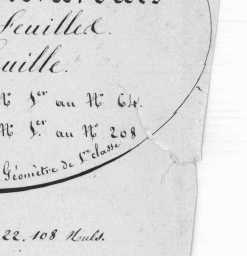 Feuilles.
uille.
N° 1er au N° 64.
N° 1er au N° 208
Géomètre de 1re classe
22.108 Huls.